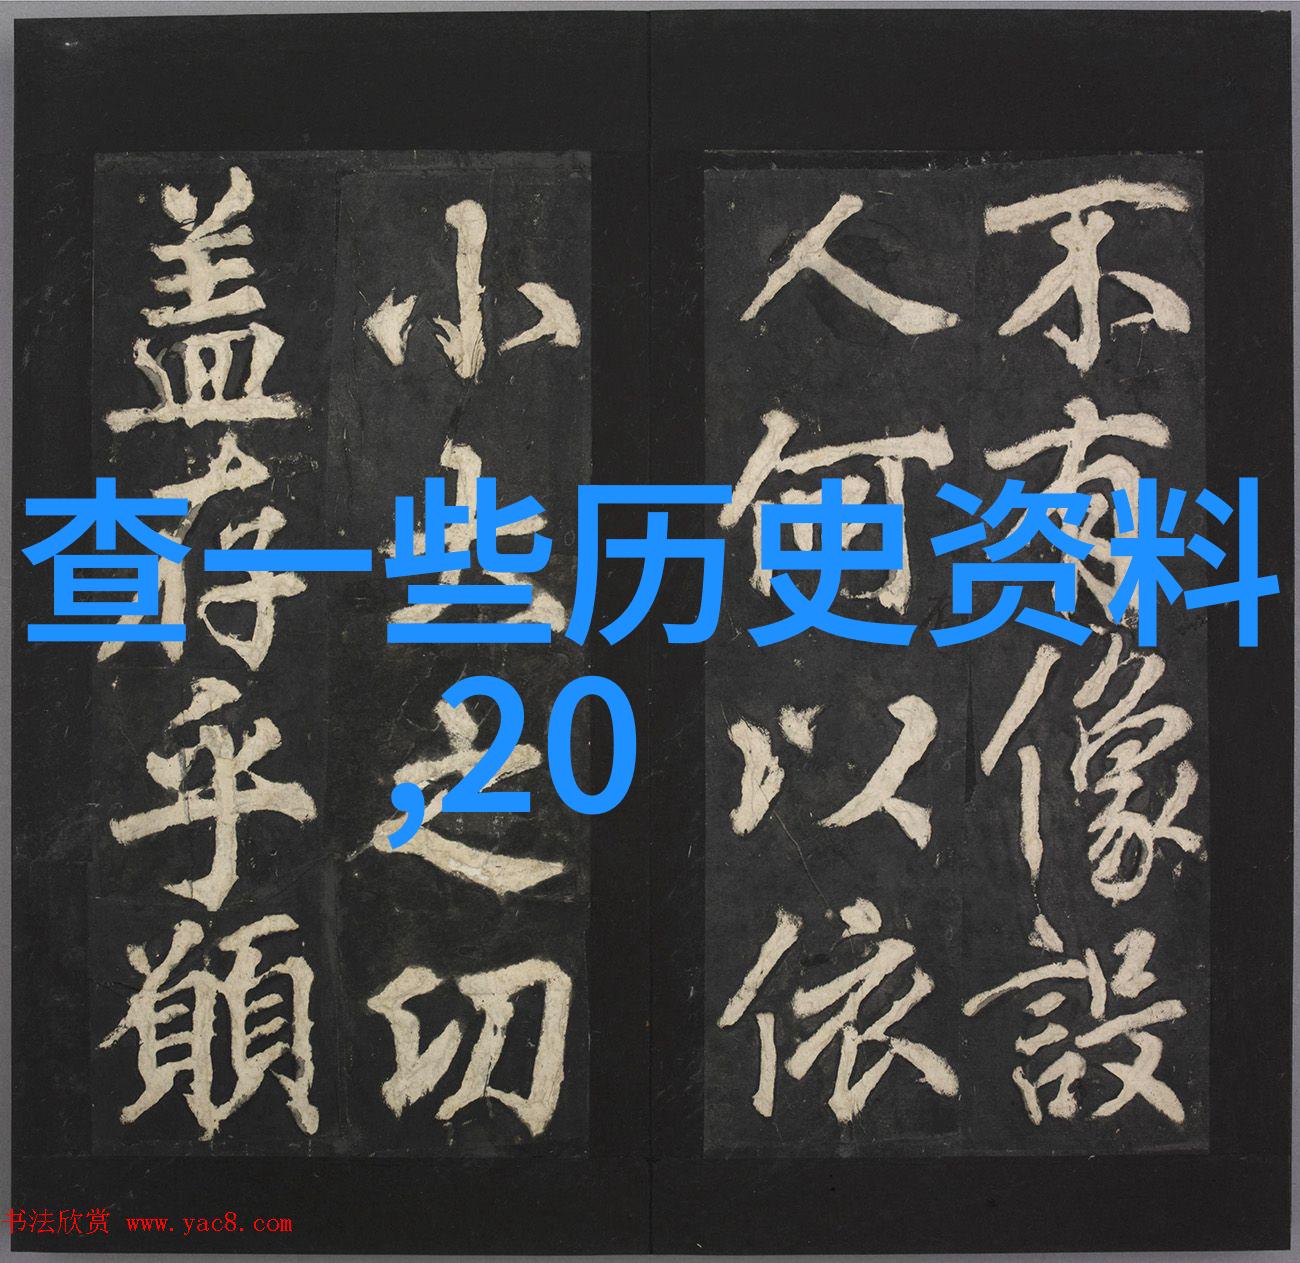 查一些历史资料
,20
不有像設
人何以依
小大之切
盖存乎願
书法欣赏 www.yac8.com